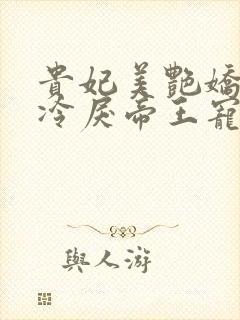 貴妃美艷嬌
冷戾帝王寵
與人游